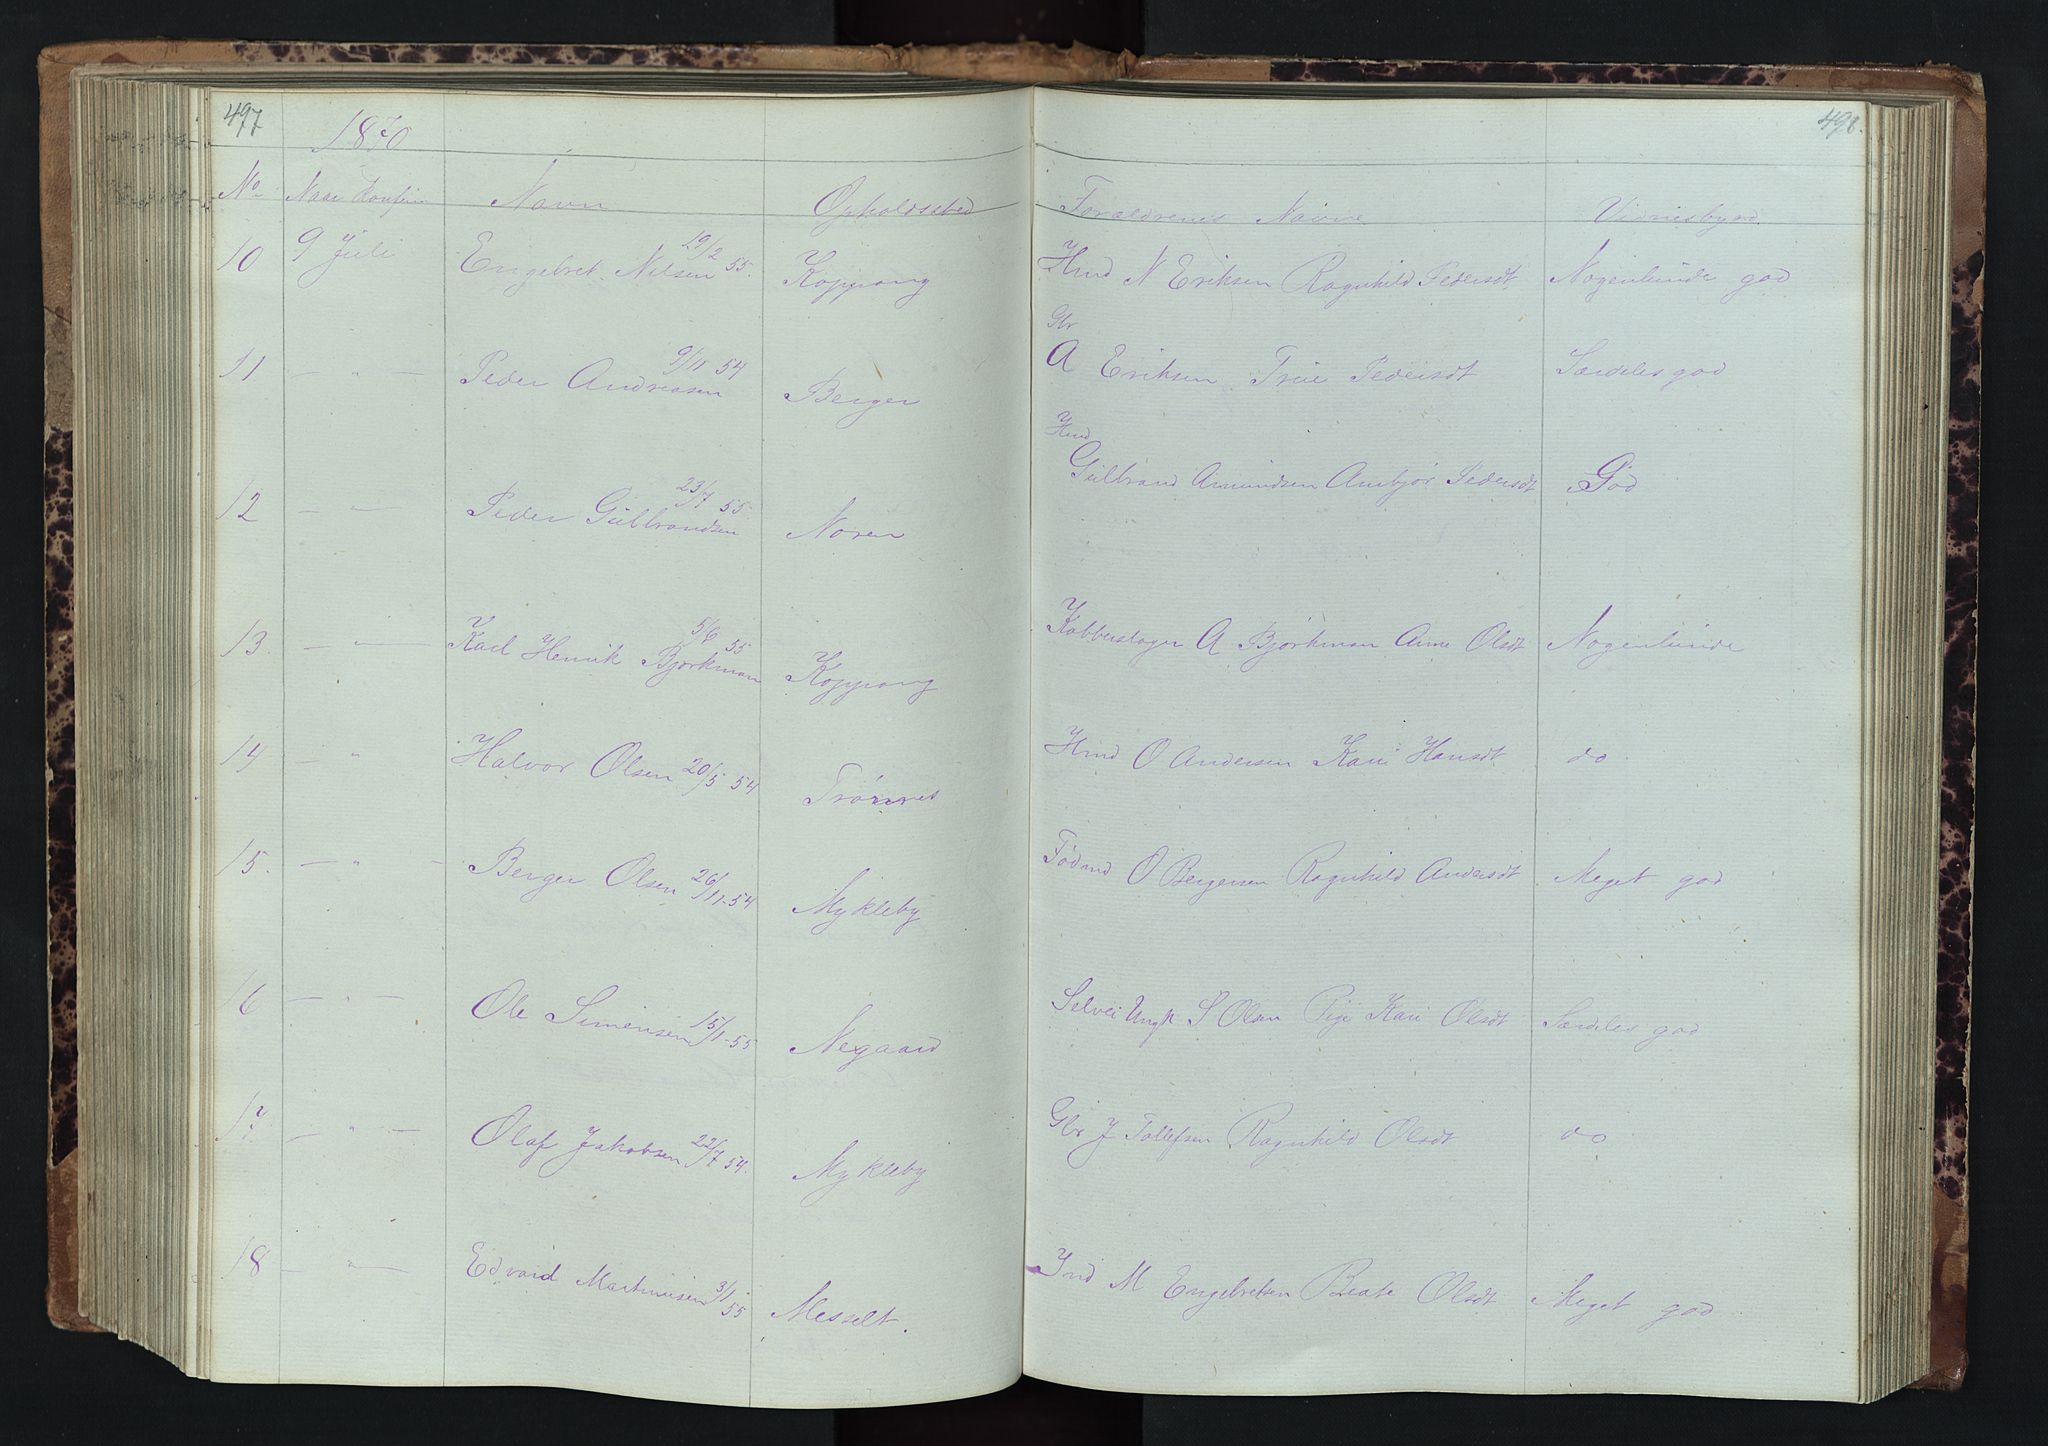 497
498.
1870
No. Naar Konfirm Navn Opholdssted Forældrenes Navne Vidnesbyrd
10 9 Juli Engebret Nilsen 19/2 55. Koppang Hmd N Eriksen Ragnhild Pedersdt Nogenlunde god
11 — " — Peder Andreasen 9/11 54 Berger Gbr A Eriksen Trine Pedersdt Særdeles god
12 — " — Peder Gulbrandsen 23/7 55 Noren Hmd Gulbrand Amundsen Ambjør Pedersdt God
13. — " — Karl Henrik Bjørkman 5/6 55 Koppang Kobberslager A Bjørkman Anne Olsdt Nogenlunde
14 — " Halvor Olsen 20/5 54 Trønnes Hmd O Andersen Kari Hansdt do
15. — " — Berger Olsen 26/11-54 Mykleby Fødmd O Bergersen Ragnhild Andersdt Meget god
16 — " — Ole Simensen 15/1-55 Negaard Selvei Ungk S Olsen Pige Kari Olsdt Særdeles god
17 — " — Olaf Jakobsen 22/7 54. Mykleby Gbr J Tollefsen Ragnhild Olsdt do
18 — " — Edvard Martinusen 3/1 55 Messelt. Ind M Engebretsen Beate Olsdt Meget god